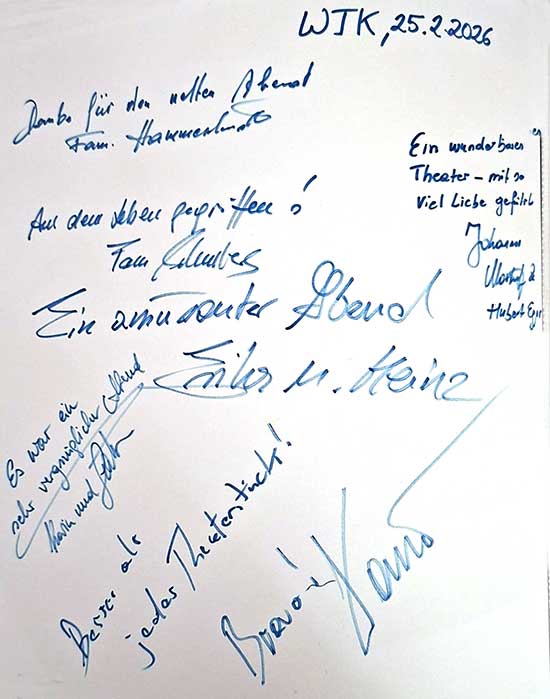 WJK, 25.2.2026
Danke für den netten Abend
Fam.
Ein wunderbares
Theater – mit so
viel Liebe geführt
Johann
Hubert
Aus dem Leben gegriffen!
Fam
Ein amüsanter Abend
Erika u. Heinz
Es war ein
sehr vergnüglicher Abend
Karin und
Besser als
jedes Theaterstück!
Bravo